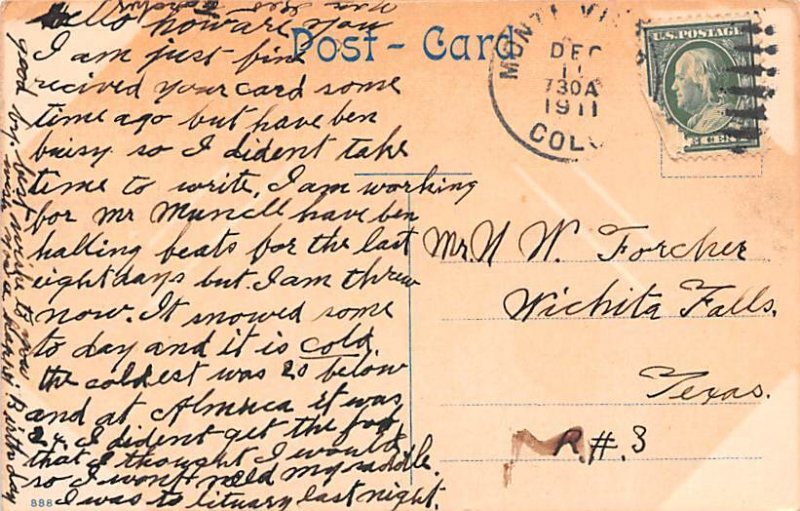 Hello how are you
I am just fine
recived your card some
time ago but have ben
buisy so I dident take
time to write, I am working
for Mr Muncll have ben
halling beats for the last
eight days but I am threw
now. It snowed some
to day and it is cold.
the coldest was 20 below
and at Almuca it was
24. I dident get the
that I thought I would
so I wont need my saddle.
I was to lituary last night.
good by. just write to
wish you a Happy Birthday
888
Post-Card
MONTE VI
DEC
11
730A
1911
COLO
U.S. POSTAGE
CENT
Mr. W. Forcher
Wichita Falls,
Texas.
R.#.3